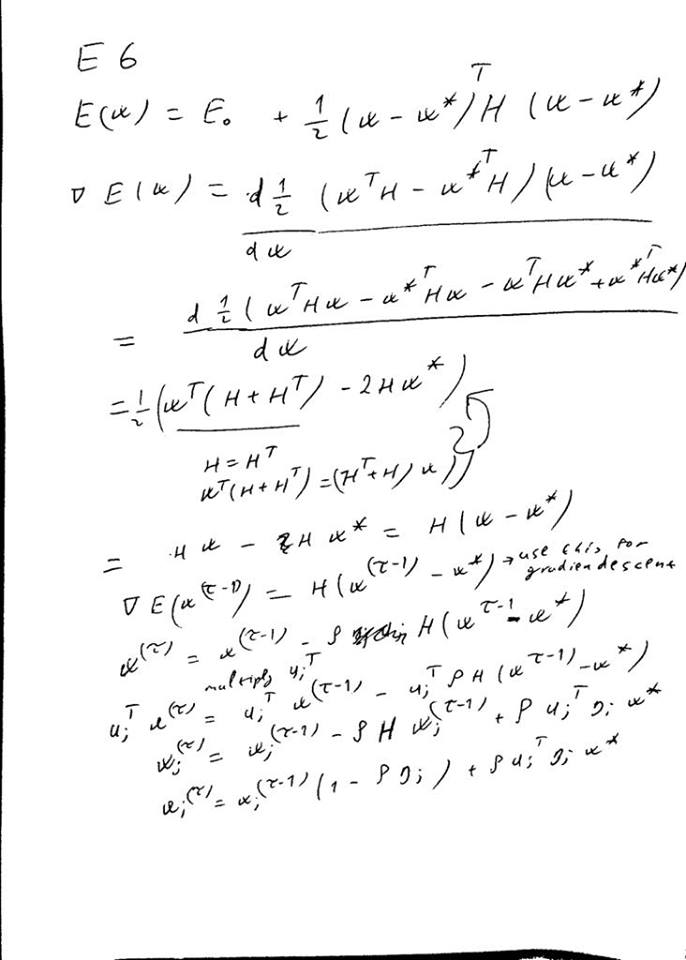 E 6
E(w) = E₀ + 1/2 (w - w*)ᵀ H (w - w*)
∇ E(w) = d 1/2 (wᵀH - w*ᵀH)(w - w*) / dw
= d 1/2 (wᵀHw - w*ᵀHw - wᵀHw* + w*ᵀHw*) / dw
= 1/2 (wᵀ(H + Hᵀ) - 2Hw*)
H = Hᵀ
wᵀ(H + Hᵀ) = (Hᵀ + H) w
= Hw - Hw* = H(w - w*)
∇ E(w^(τ-1)) = H(w^(τ-1) - w*) → use this for gradiendescent
w^(τ) = w^(τ-1) - ρ H(w^τ-1 - w*)
multiply uᵢᵀ
uᵢᵀ w^(τ) = uᵢᵀ w^(τ-1) - uᵢᵀ ρ H (w^τ-1) - w*)
wᵢ^(τ) = wᵢ^(τ-1) - ρ H wᵢ^(τ-1) + ρ uᵢᵀ ηᵢ w*
wᵢ^(τ) = wᵢ^(τ-1) (1 - ρ ηᵢ) + ρ uᵢᵀ ηᵢ w*